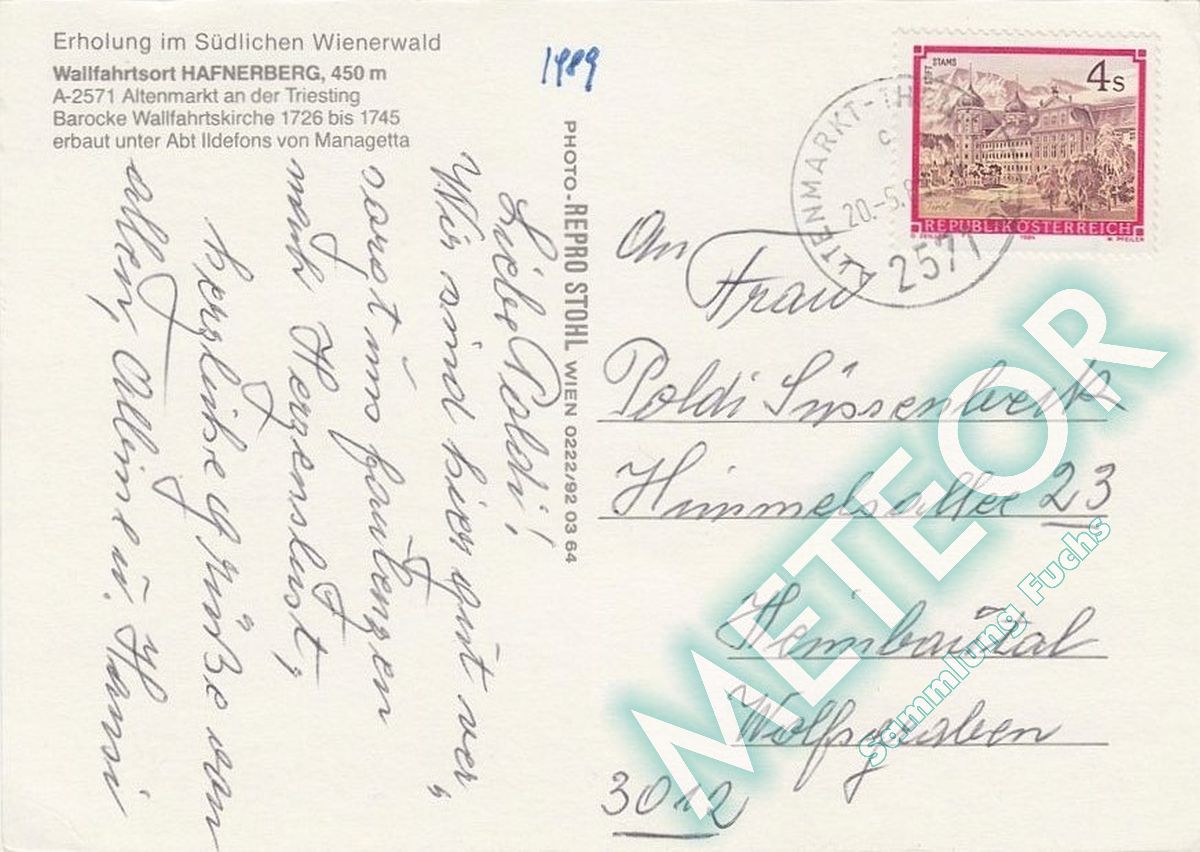 Erholung im Südlichen Wienerwald
Wallfahrtsort HAFNERBERG, 450 m
A-2571 Altenmarkt an der Triesting
Barocke Wallfahrtskirche 1726 bis 1745
erbaut unter Abt Ildefons von Managetta
1989
Liebe Poldi!
Wir sind hier gut ver,
sorgt ùm faulenzen
nach Herzenslust,
herzliche Grüße von
allen,
ù. Hansi
PHOTO-REPRO STOHL WIEN 0222/92 03 64
STIFT STAMS
4 S
REPUBLIK ÖSTERREICH
1984
W. PFEILER
ALTENMARKT-TH
20.-5.
2571
An
Frau
Poldi Süssenbeck
Himmelsallee 23
Wolfsgraben
3012
METEOR
Sammlung Fuchs